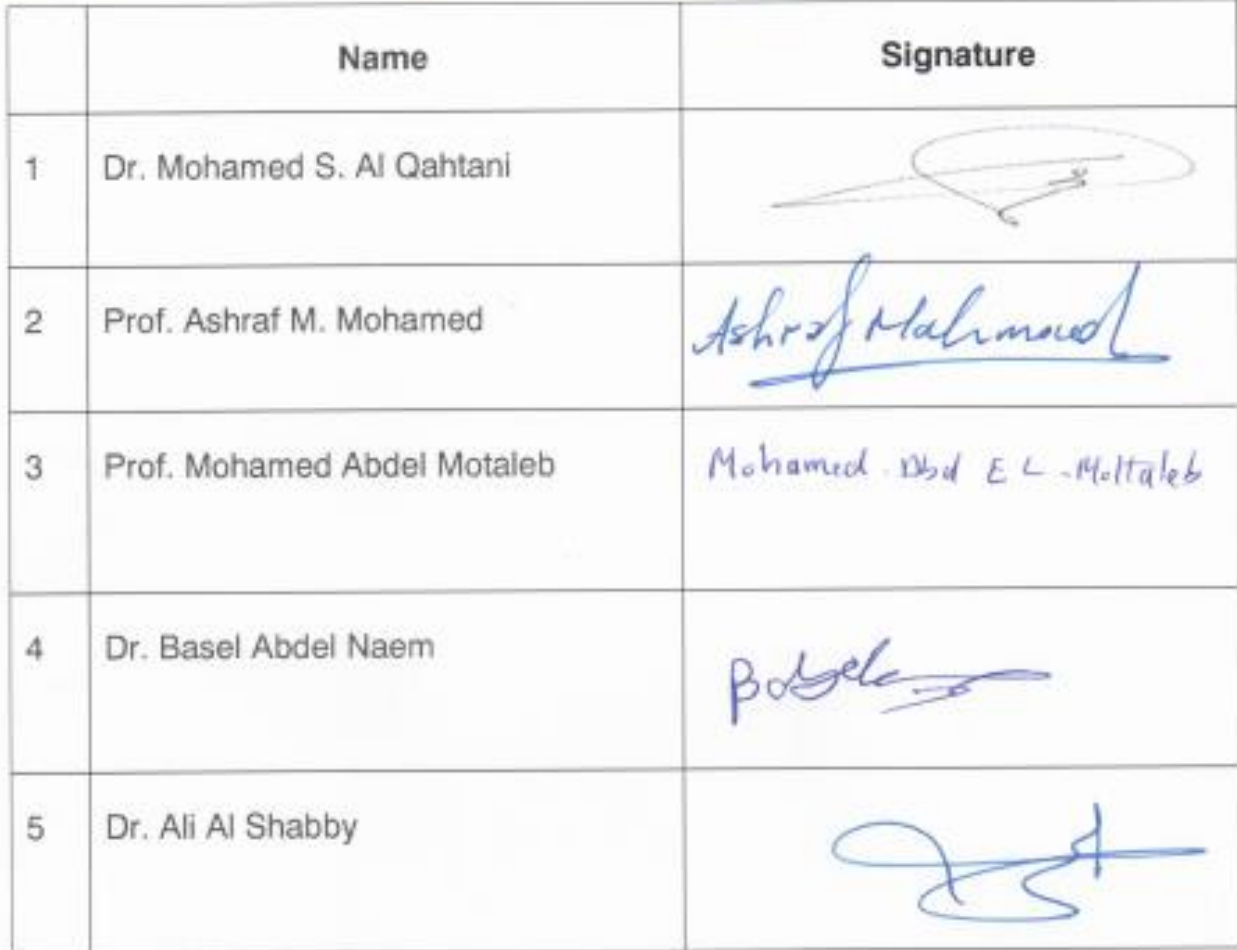 Name Signature
1 Dr. Mohamed S. Al Qahtani
2 Prof. Ashraf M. Mohamed Ashraf Mahmoud
3 Prof. Mohamed Abdel Motaleb Mohamed Abd EL-Mottaleb
4 Dr. Basel Abdel Naem Basel
5 Dr. Ali Al Shabby